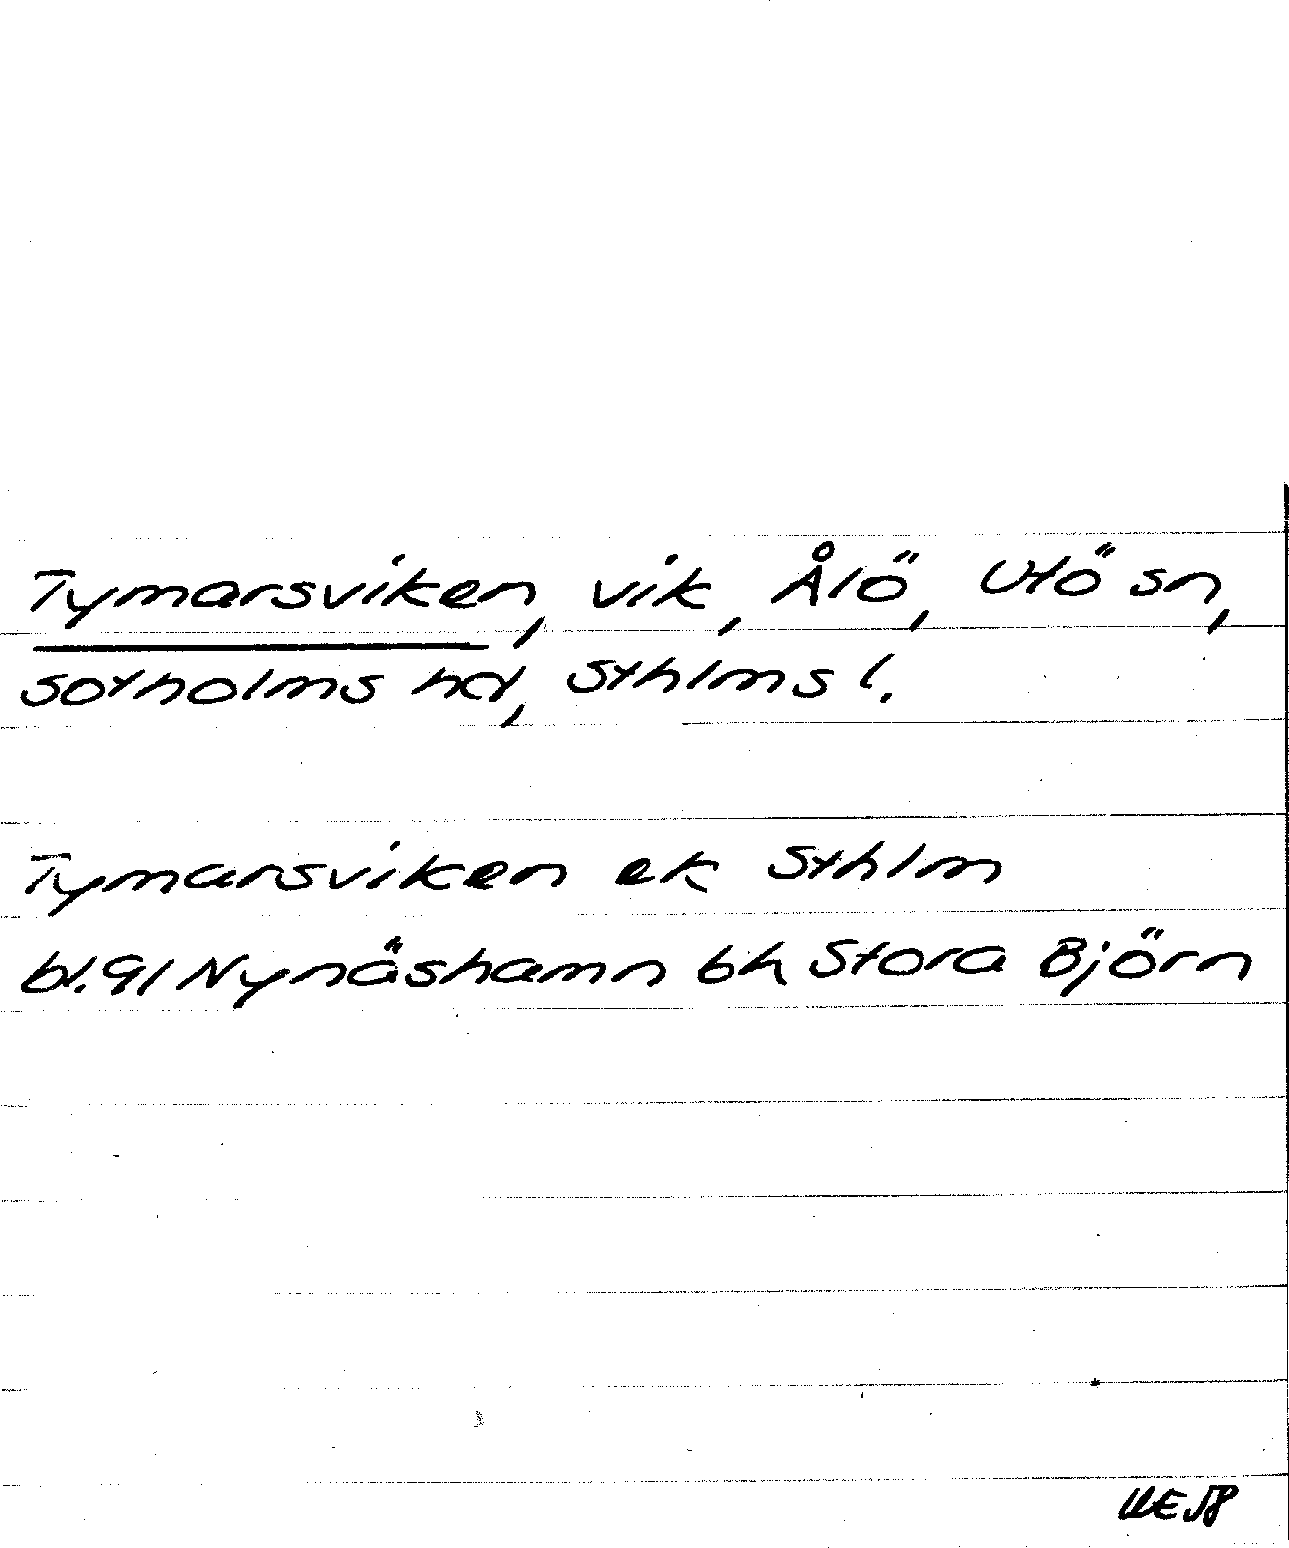 Tymarsviken, vik, Ålö, Utö sn,
Sotholms hd, Sthlms l.
Tymarsviken ek Sthlm
bl. 91 Nynäshamn bh Stora Björn